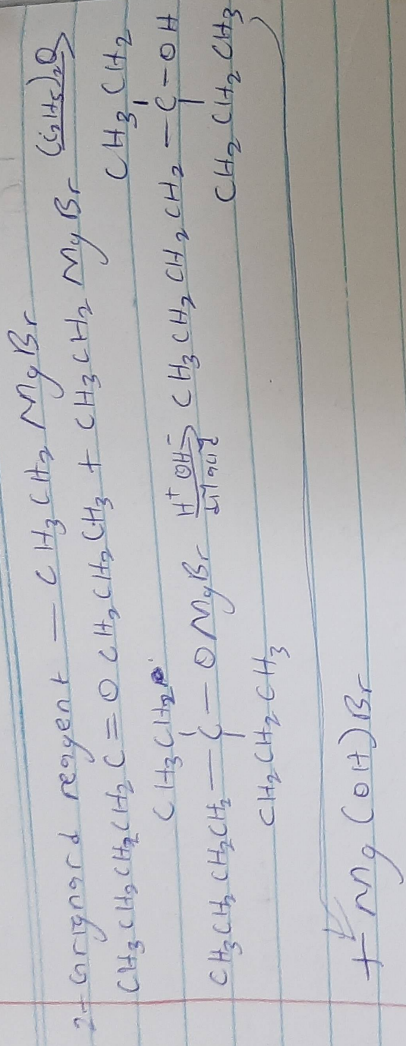 2- Grignard reagent - CH3CH2MgBr
CH3CH2CH2CH2C=OCH2CH2CH3 + CH3CH2MgBr (C2H5)2O
CH3CH2 CH3CH2
CH3CH2CH2CH2-C-OMgBr H+ OH- dil acid CH3CH2CH2CH2-C-OH
CH2CH2CH3 CH2CH2CH3
+ Mg(OH)Br